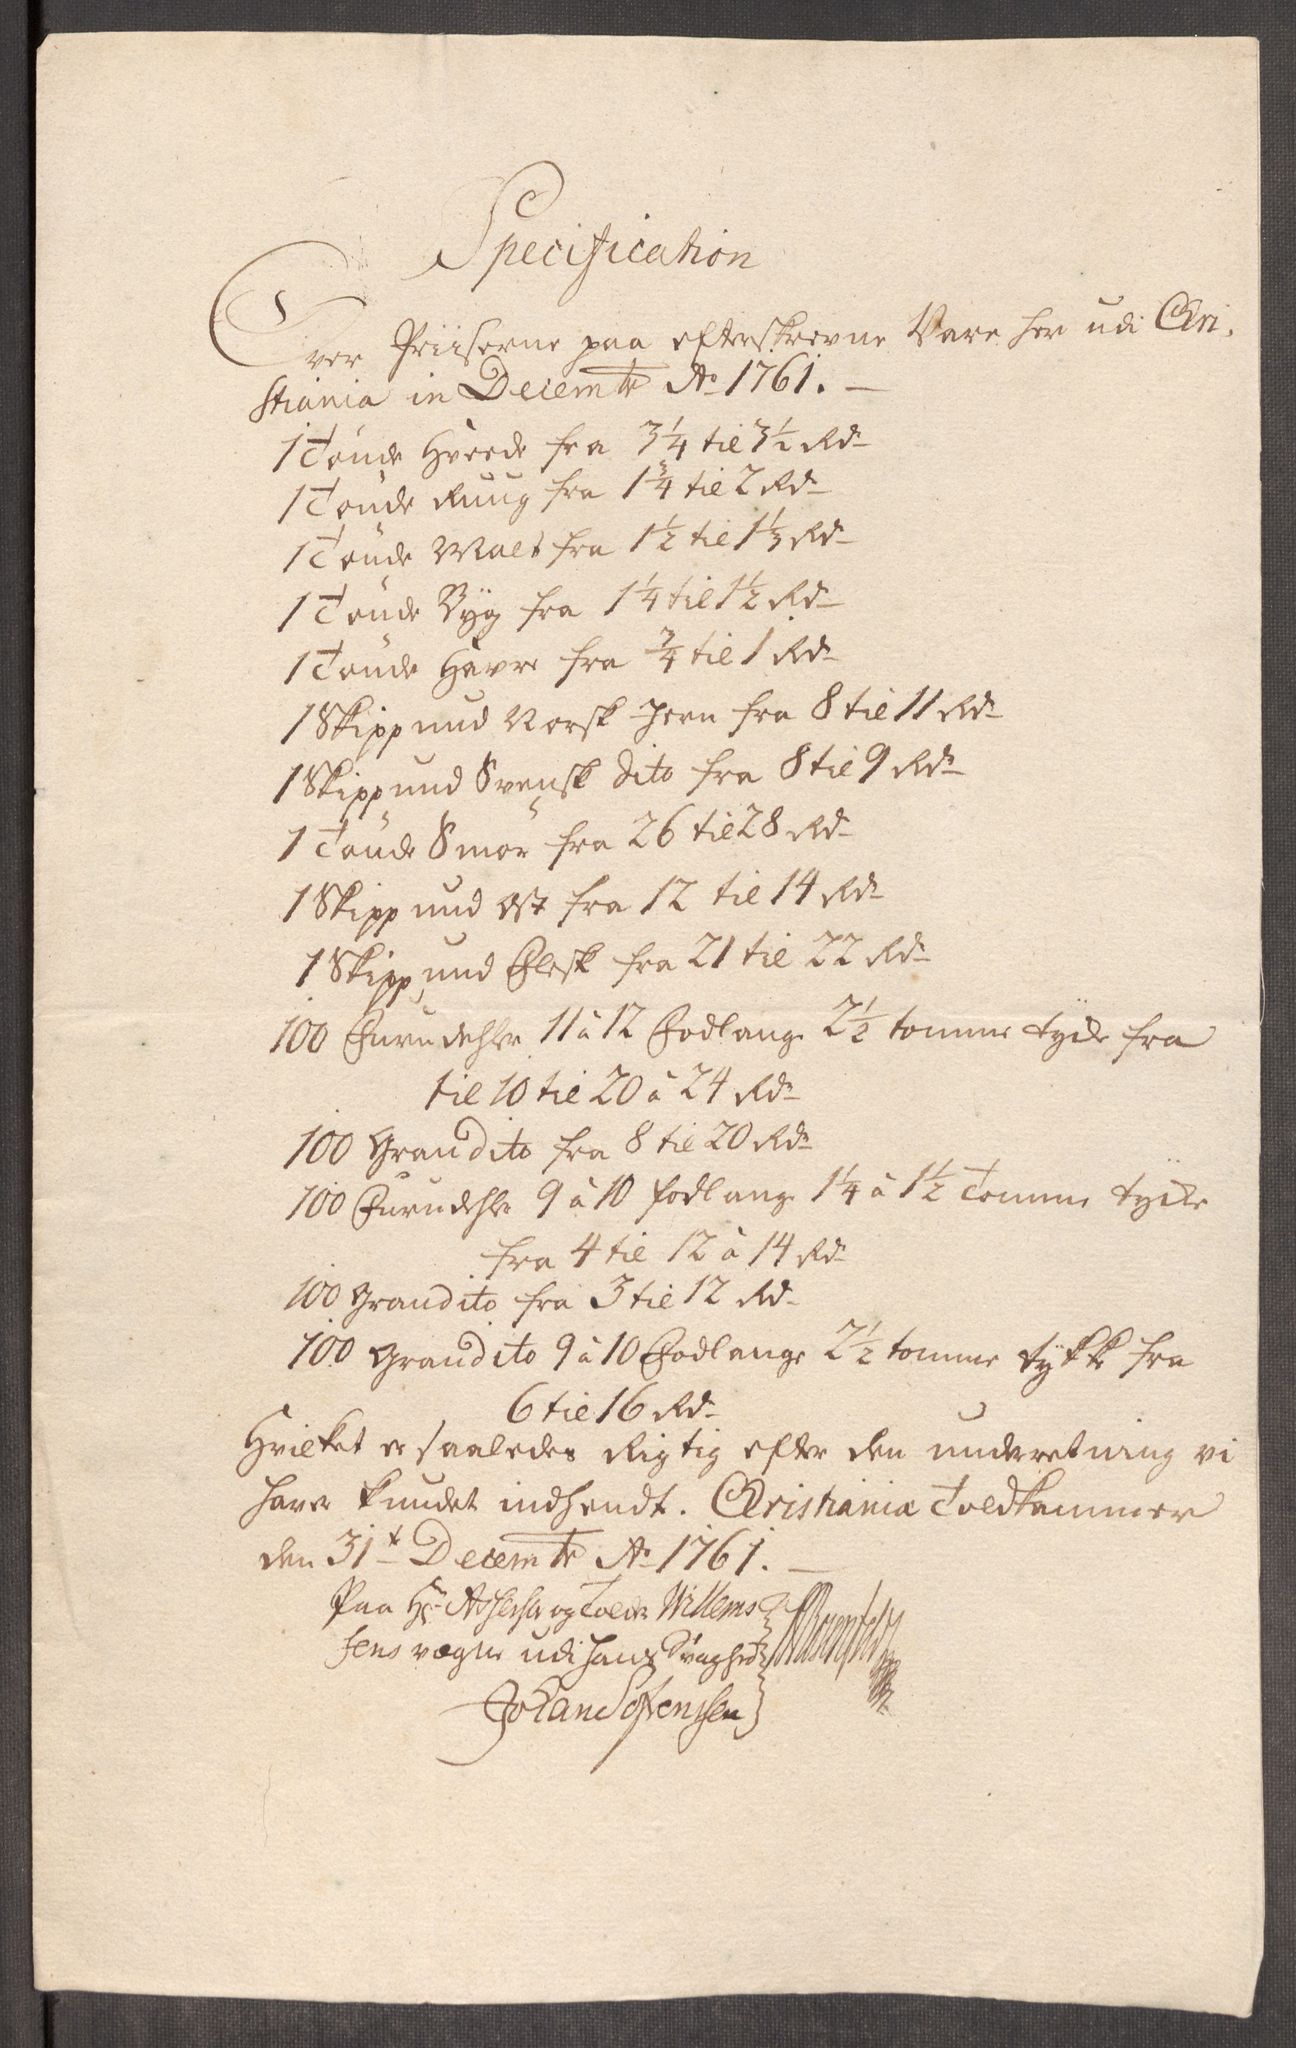 Specification
Over Priiserne paa efterskrevne Vare her udi Chri-
stiania in Decembr Ao 1761. —
1 Tönde Hvede fra 3 1/4 til 3 1/2 Rdr
1 Tönde Ruug fra 1 3/4 til 2 Rdr
1 Tönde Malt fra 1 1/2 til 1 1/3 Rdr
1 Tönde Byg fra 1 1/4 til 1 1/2 Rdr
1 Tönde Havre fra 3/4 til 1 Rdr
1 Skippund Norsk Jern fra 8 til 11 Rdr
1 Skippund Svensk dito fra 8 til 9 Rdr
1 Tönde Smör fra 26 til 28 Rdr
1 Skippund Ost fra 12 til 14 Rdr
1 Skippund Flesk fra 21 til 22 Rdr
100 Furudehler 11 à 12 Fodlange 2 1/2 tomme tycke fra
til 10 til 20 à 24 Rdr
100 Grandito fra 8 til 20 Rdr
100 Furudehler 9 à 10 fodlange 1 1/4 à 1 1/2 Tomme tycke
fra 4 til 12 à 14 Rdr
100 Grandito fra 3 til 12 Rdr
100 Grandito 9 à 10 Fodlange 2 1/2 tomme tykke fra
6 til 16 Rdr
Hvilket er saaledes Rigtig efter den underretning vi
haver kundet indhendt. Christiania Toldkammer
den 31t Decembr Ao 1761. —
Paa Hr og Tolder Willems
sens vegne udi hans Svaghed
Johan Sørenssen